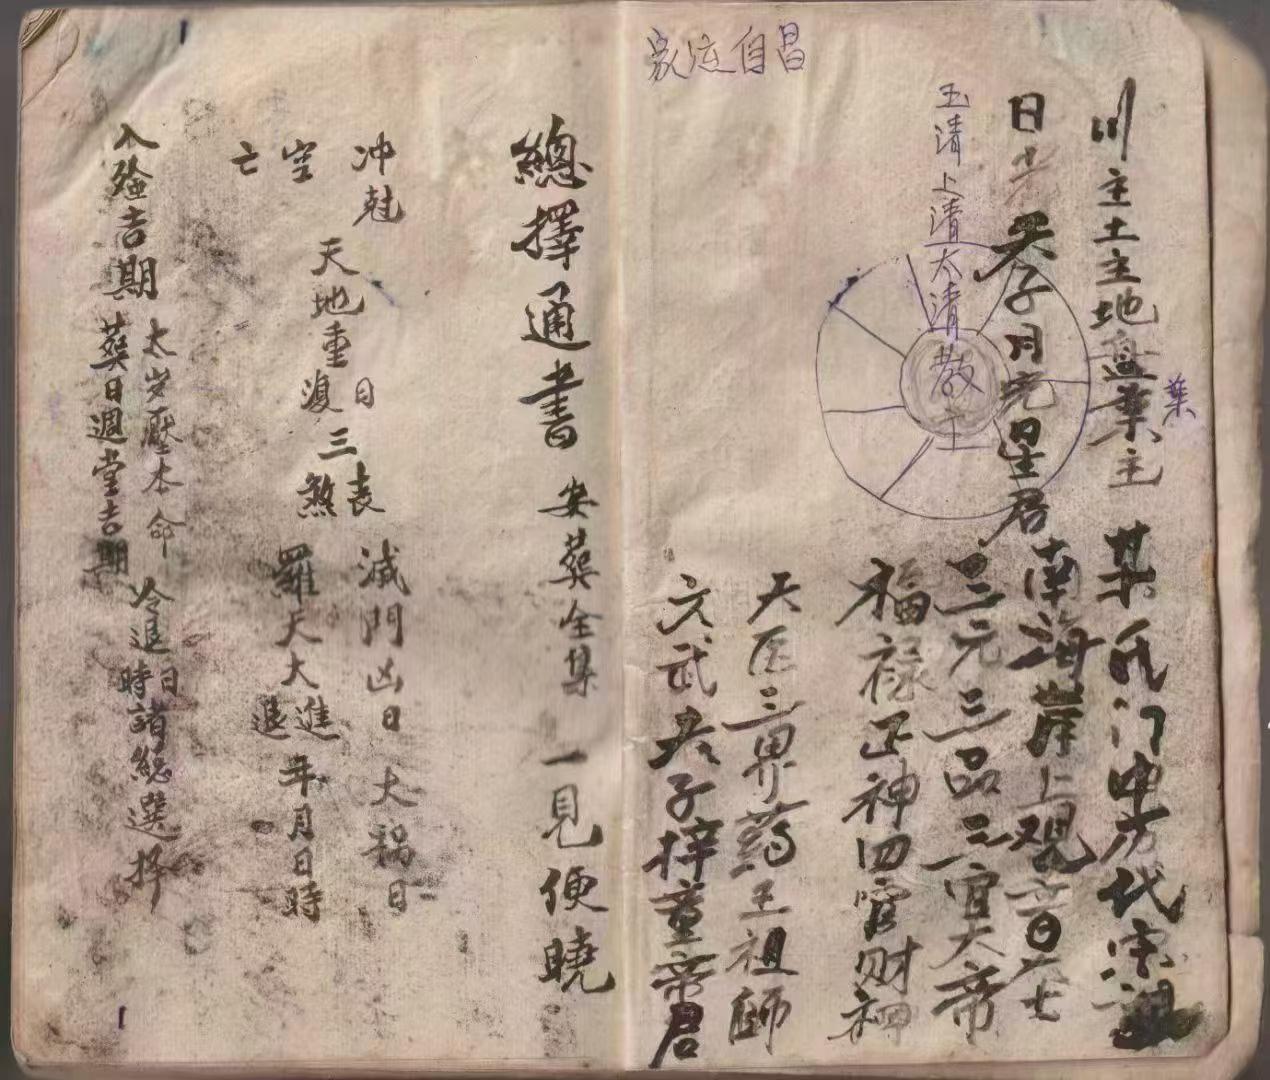 川主土主地盘業主 某氏门中历代宗祖
業
日光天子月光星君 南海岸上观音大士
玉清上清太清教主
三元三品三官大帝
福禄正神四官财神
天医三界药王祖師
文武夫子梓童帝君
自昌
總擇通書 安葬全集 一見便曉
冲尅
空亡
天地重復日 三丧煞
滅門凶日 大祸日
羅天大進退 年月日時
入殮吉期 太岁壓本命 冷退日時諸総選择
葬日週堂吉期